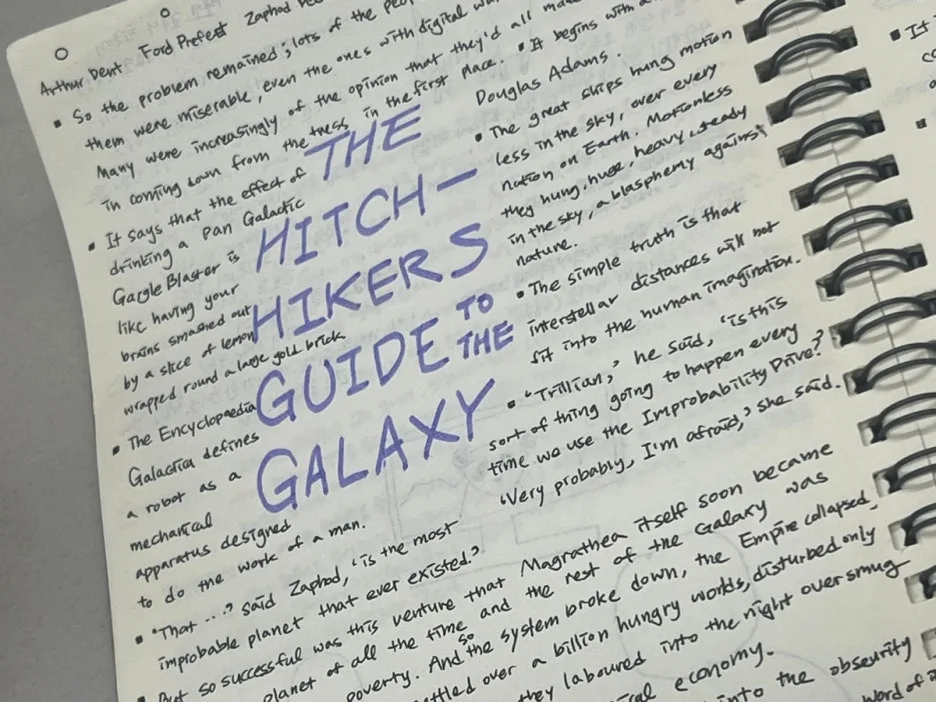 Arthur Dent Ford Prefect Zaphod
• So the problem remained; lots of the
them were miserable, even the ones with digital
Many were increasingly of the opinion that they'd all
in coming down from the trees in the first place.
• It says that the effect of
drinking a Pan Galactic
Gargle Blaster is
like having your
brains smashed out
by a slice of lemon
wrapped round a large gold brick
• The Encyclopaedia
Galactica defines
a robot as a
mechanical
apparatus designed
to do the work of a man.
THE
HITCH-
HIKERS
GUIDE TO
THE
GALAXY
• It begins with a
Douglas Adams.
• The great ships hung motion
less in the sky, over every
nation on Earth. Motionless
they hung, huge, heavy, steady
in the sky, a blasphemy against
nature.
• The simple truth is that
interstellar distances will not
fit into the human imagination.
• 'Trillian,' he said, 'is this
sort of thing going to happen every
time we use the Improbability Drive?'
'Very probably, I'm afraid,' she said.
• 'That ...?' said Zaphod, 'is the most
improbable planet that ever existed.'
• But so successful was this venture that Magrathea itself soon became
planet of all time and the rest of the Galaxy was
poverty. And so the system broke down, the Empire collapsed,
over a billion hungry worlds, disturbed only
they laboured into the night over smug
economy.
into the obscurity
word of
• It